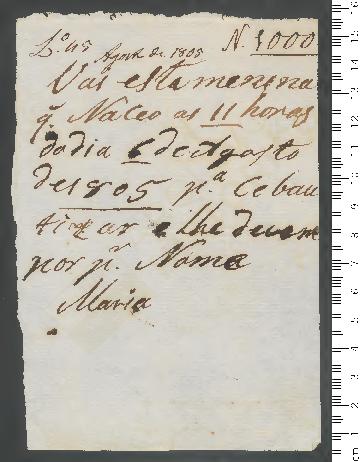 Lº 45 Agosto de 1805 N. 1000
Vai esta menina
q. Naceo as 11 horas
do dia 6 de Agosto
de 1805 pª Ce bau
tizar e lhe derem
por pr. Nome
Maria